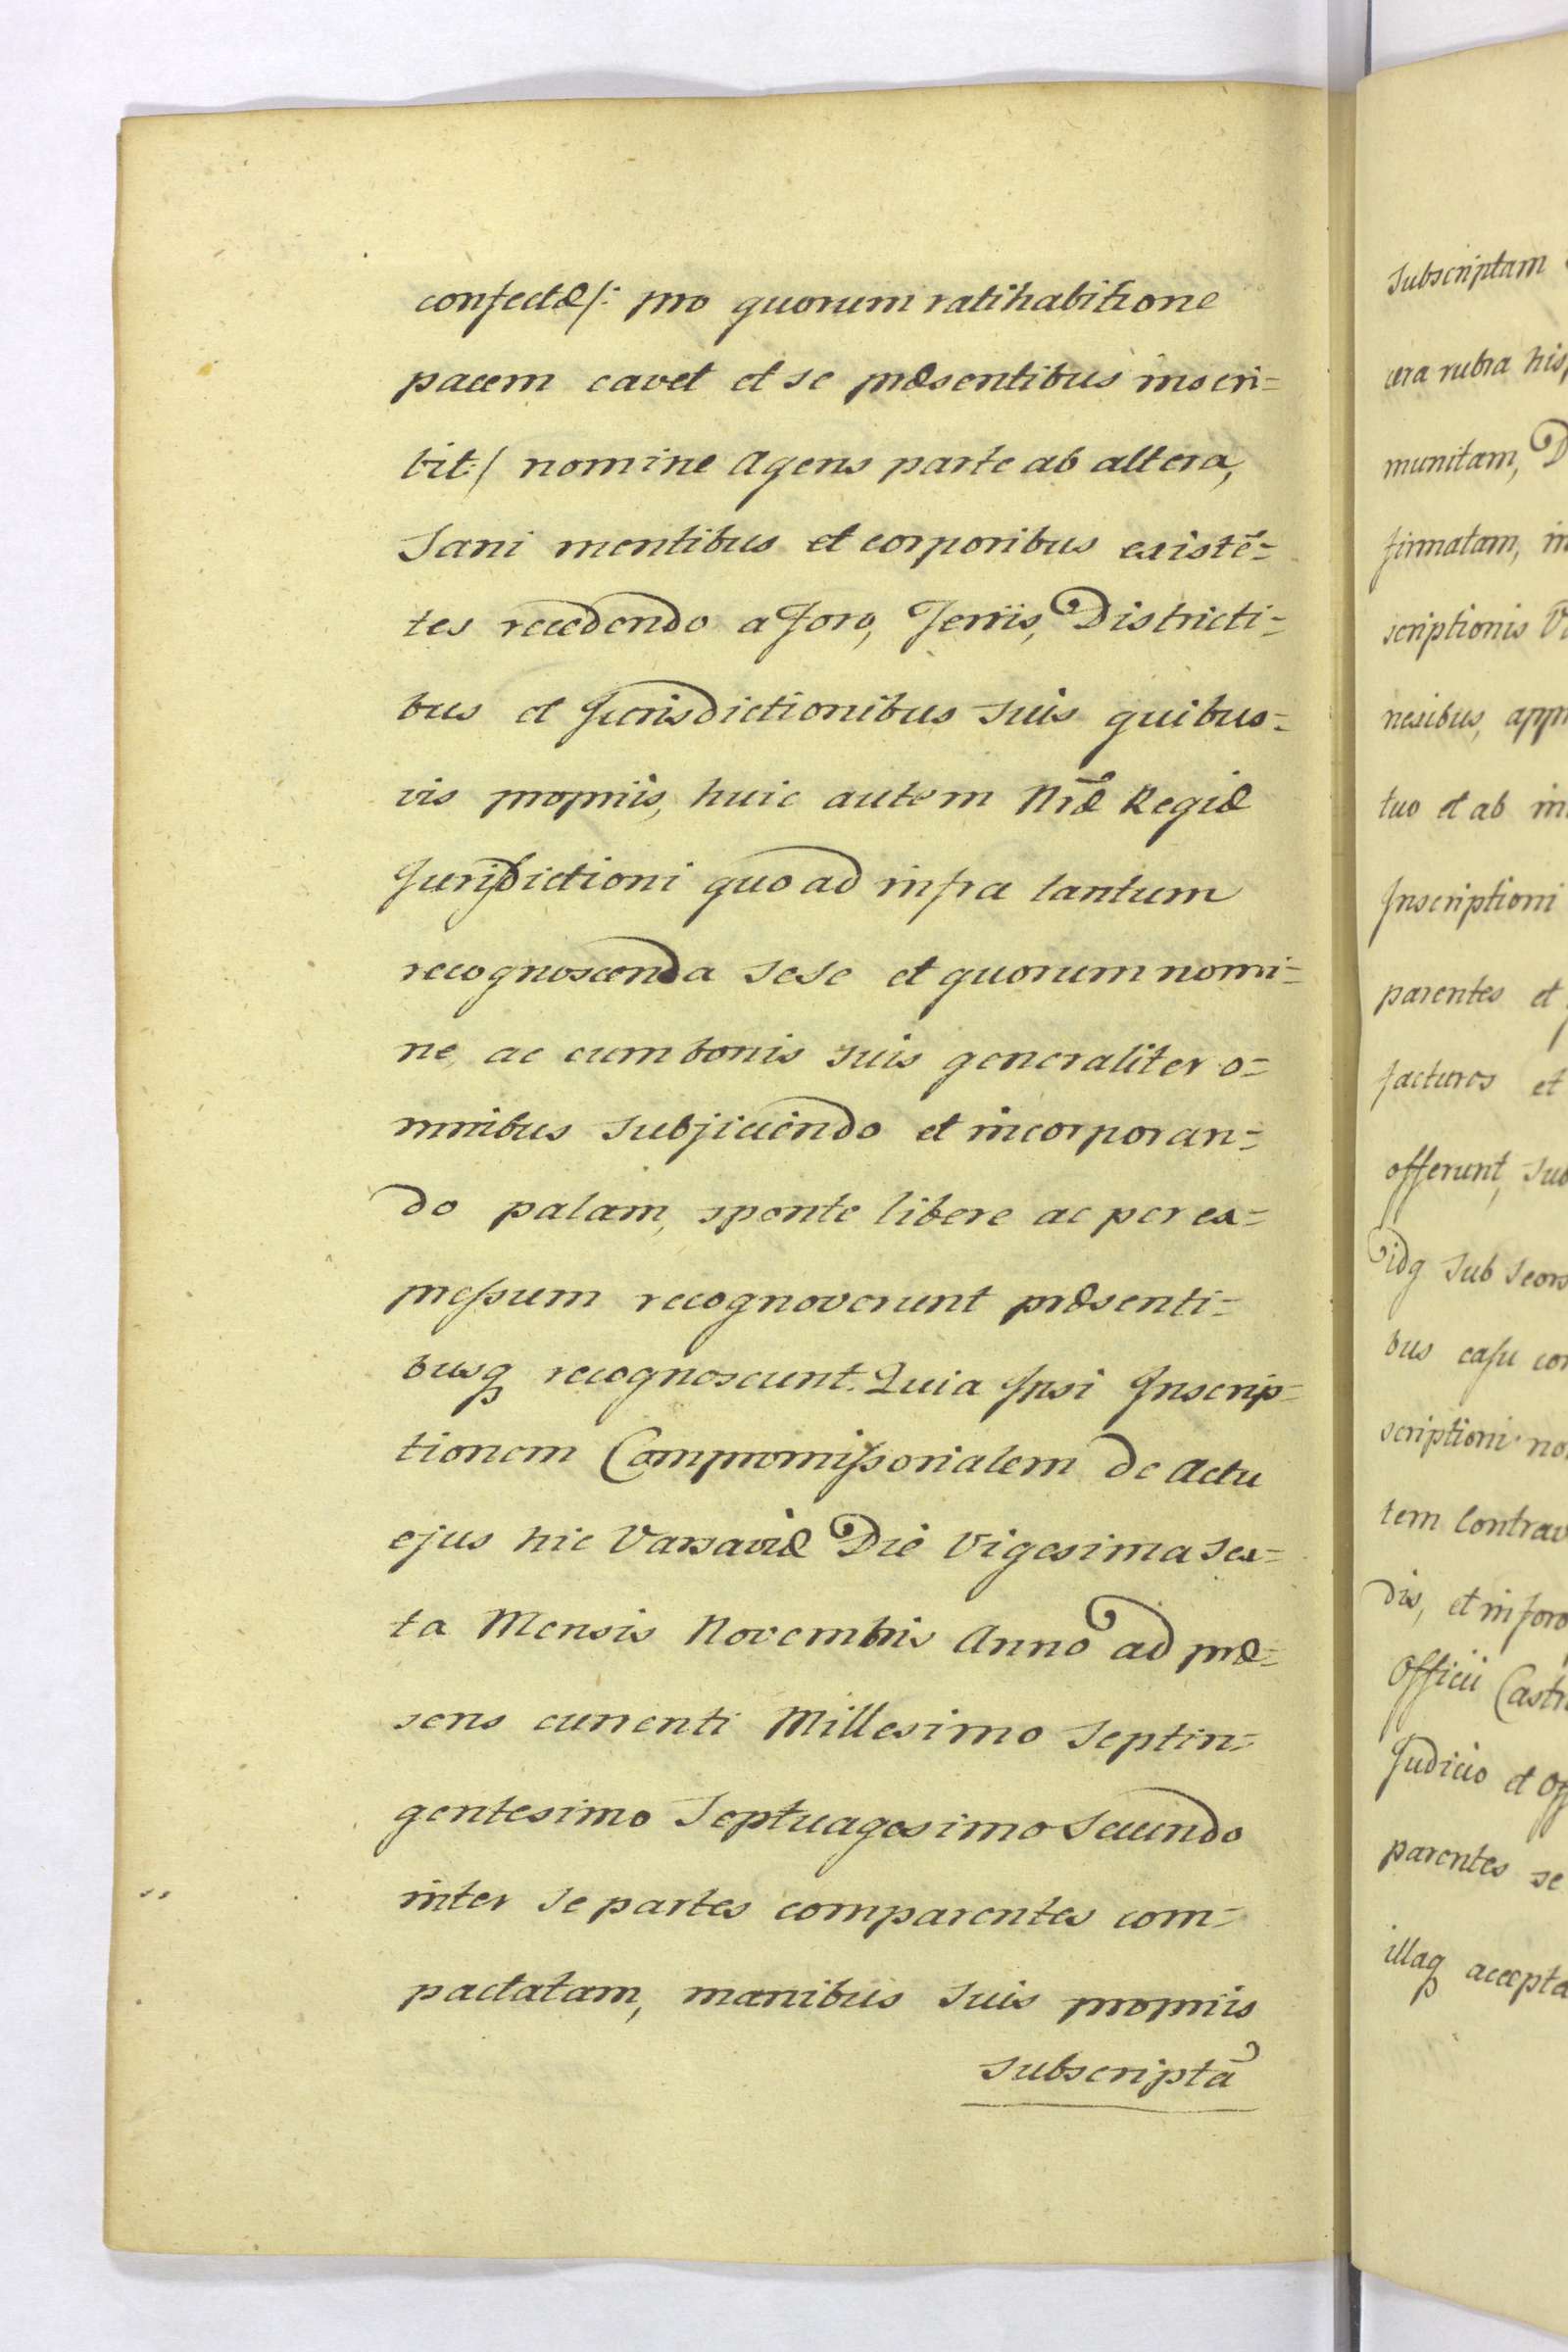 confectæ/: pro quorum ratihabitione
pacem cavet et se præsentibus inscri=
bit:/ nomine Agens parte ab altera,
Sani mentibus et corporibus existē=
tes recedendo a Foro, Terris, Districti=
bus et Jurisdictionibus suis quibus=
vis propriis, huic autem Nr̄æ Regiæ
Jurisdictioni quo ad infra tantum
recognoscenda sese et quorum nomi=
ne, ac cum bonis suis generaliter o=
mnibus subjiciendo et incorporan=
do palam, sponte libere ac per ex=
pressum recognoverunt præsenti=
busq recognoscunt. Quia Ipsi Inscrip=
tionem Compromissorialem de Actu
ejus hic Varsaviæ Die Vigesima Sex=
ta Mensis Novembris Anno ad præ=
sens currenti Millesimo Septin=
gentesimo Septuagesimo Secundo
inter se partes comparentes com=
pactatam, manibus suis propriis
subscriptā
Subscriptam
cera rubra his
munitam, D
firmatam, in
scriptionis V
nexibus, app
tuo et ab in
Inscriptioni
parentes et
facturos et
offerunt, sub
idq sub seors
bus casu con
scriptioni no
tem Contrav
dis, et in foro
Officii Castr
Judicio et Off
parentes se
illaq accepta